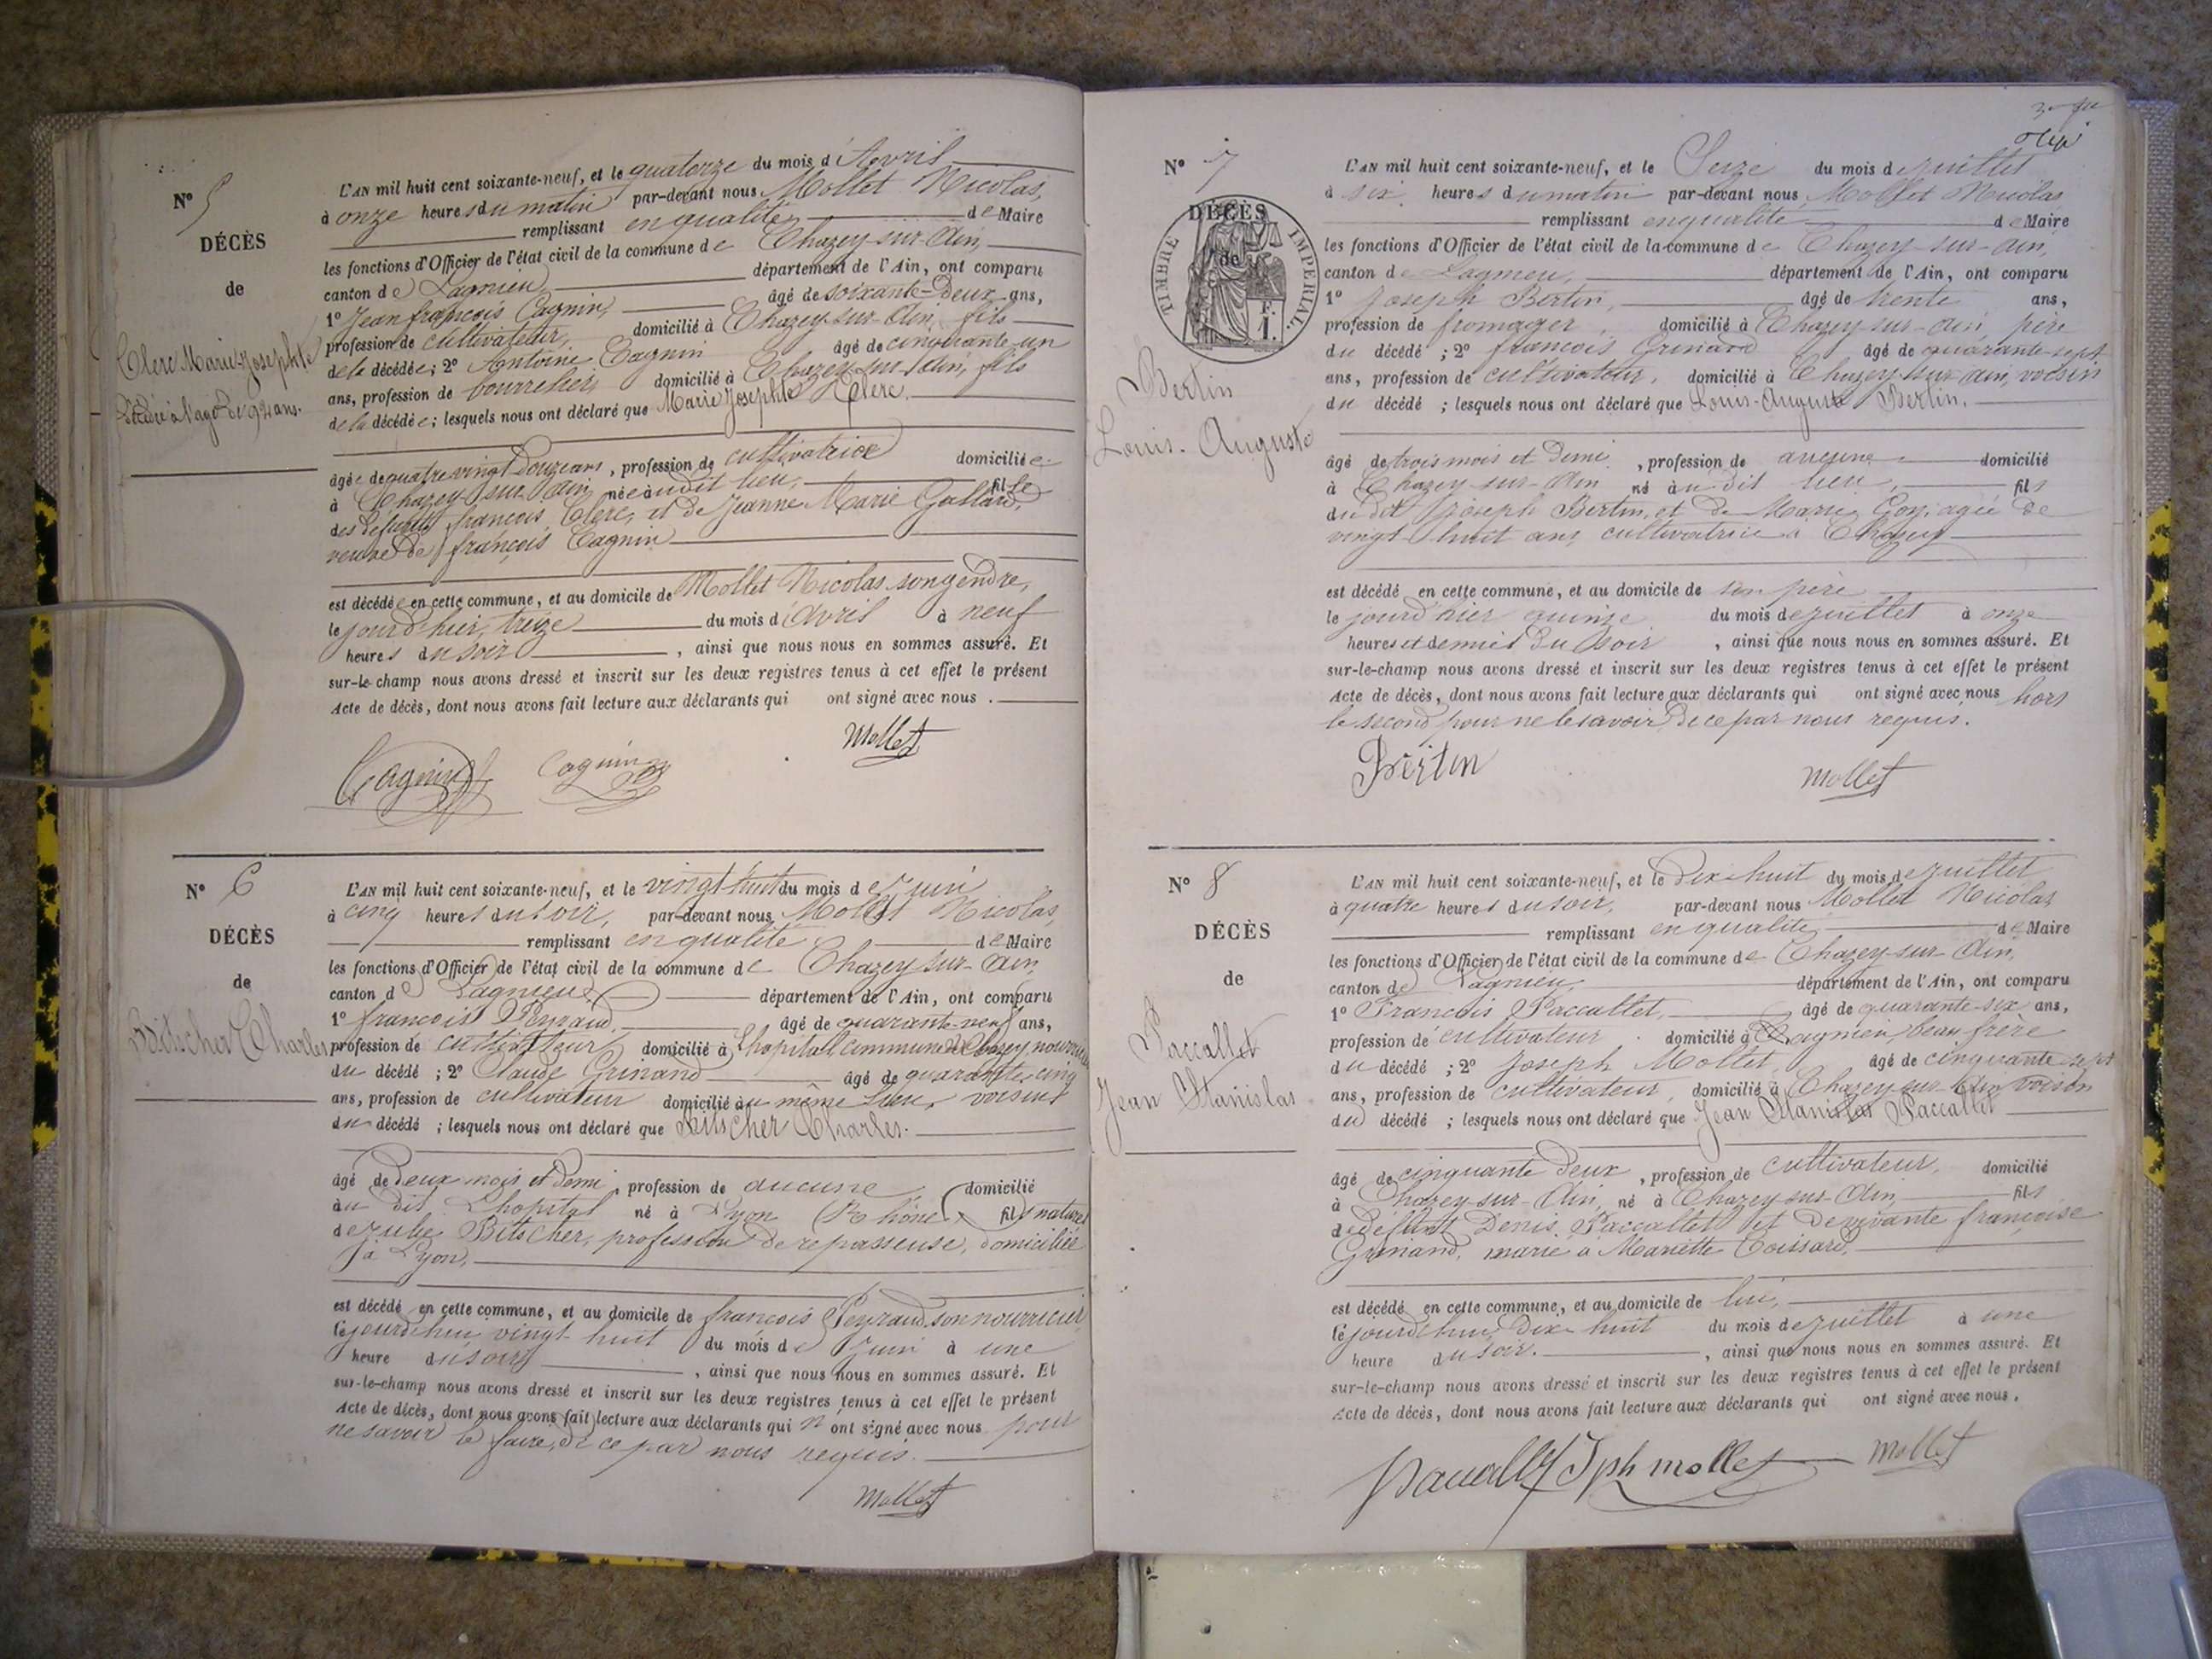 N° 5
DÉCÈS
de
Clerc Marie Josephte
décédée à l'âge de 92 ans.
L'AN mil huit cent soixante-neuf, et le quatorze du mois d'Avril
à onze heures du matin par-devant nous Mollet Nicolas,
remplissant en qualité de Maire
les fonctions d'Officier de l'état civil de la commune de Chazey-sur-Ain,
canton de Lagnieu, département de l'Ain, ont comparu
1° Jean françois Cagnin, âgé de soixante-Deux ans,
profession de cultivateur, domicilié à Chazey-sur-Ain, fils
de la décédée; 2° Antoine Cagnin âgé de cinquante-un
ans, profession de bourrelier domicilié à Chazey-sur-Ain, fils
de la décédée; lesquels nous ont déclaré que Marie Josephte Clerc.
âgée de quatre vingt Douze ans, profession de cultivatrice domiciliée
à Chazey sur Ain née audit lieu, fille
des Défunts françois Clerc, et de Jeanne Marie Gallard,
veuve de françois Cagnin
est décédée en cette commune, et au domicile de Mollet Nicolas son gendre,
le jour d'hier, treize du mois d'Avril à neuf
heures du soir, ainsi que nous nous en sommes assuré. Et
sur-le-champ nous avons dressé et inscrit sur les deux registres tenus à cet effet le présent
Acte de décès, dont nous avons fait lecture aux déclarants qui ont signé avec nous.
Cagnin Cagnin Mollet
N° 6
DÉCÈS
de
Bitscher Charles
L'AN mil huit cent soixante-neuf, et le vingt huit du mois de Juin
à cinq heures du soir, par-devant nous Mollet Nicolas,
remplissant en qualité de Maire
les fonctions d'Officier de l'état civil de la commune de Chazey-sur-Ain,
canton de Lagnieu, département de l'Ain, ont comparu
1° françois Peyraud, âgé de quarante-neuf ans,
profession de cultivateur domicilié à Lhopital commune de Chazey, nourricier
du décédé; 2° Claude Grinand âgé de quarante cinq
ans, profession de cultivateur domicilié au même Lieu, voisins
du décédé; lesquels nous ont déclaré que Bitscher Charles.
âgé de Deux mois et Demi, profession de aucune domicilié
au dit Lhopital né à Lyon (Rhône), fils naturel
de Julie Bitscher, profession de repasseuse, domiciliée
à Lyon,
est décédé en cette commune, et au domicile de françois Peyraud son nourricier
le jourd'hui vingt huit du mois de Juin à une
heure du soir, ainsi que nous nous en sommes assuré. Et
sur-le-champ nous avons dressé et inscrit sur les deux registres tenus à cet effet le présent
Acte de décès, dont nous avons fait lecture aux déclarants qui n'ont signé avec nous pour
ne savoir le faire, de ce par nous requis.
Mollet
N° 7
DÉCÈS
de
TIMBRE IMPERIAL.
F.
1.
Bertin
Louis-Auguste
L'AN mil huit cent soixante-neuf, et le Seize du mois de juillet
à six heures du matin par-devant nous Mollet Nicolas
remplissant en qualité de Maire
les fonctions d'Officier de l'état civil de la commune de Chazey-sur-Ain,
canton de Lagnieu, département de l'Ain, ont comparu
1° Joseph Bertin, âgé de trente ans,
profession de fromager, domicilié à Chazey-sur-Ain père
du décédé; 2° françois Grinand âgé de quarante-sept
ans, profession de cultivateur, domicilié à Chazey-sur-Ain, voisin
du décédé; lesquels nous ont déclaré que Louis-Auguste Bertin.
âgé de trois mois et Demi, profession de aucune domicilié
à Chazey-sur-Ain né au dit lieu, fils
du dit Joseph Bertin, et de Marie Goy, agée de
vingt huit ans, cultivatrice à Chazey
est décédé en cette commune, et au domicile de son père
le jour d'hier quinze du mois de juillet à onze
heures et demies Du soir, ainsi que nous nous en sommes assuré. Et
sur-le-champ nous avons dressé et inscrit sur les deux registres tenus à cet effet le présent
Acte de décès, dont nous avons fait lecture aux déclarants qui ont signé avec nous hors
le second pour ne le savoir, de ce par nous requis.
Bertin Mollet
N° 8
DÉCÈS
de
Paccallet
Jean Stanislas
L'AN mil huit cent soixante-neuf, et le Dix-huit du mois de juillet
à quatre heures du soir, par-devant nous Mollet Nicolas
remplissant en qualité de Maire
les fonctions d'Officier de l'état civil de la commune de Chazey-sur-Ain,
canton de Lagnieu, département de l'Ain, ont comparu
1° François Paccallet, âgé de quarante-six ans,
profession de cultivateur domicilié à Lagnieu, beau frère
du décédé; 2° Joseph Mollet, âgé de cinquante-sept
ans, profession de cultivateur, domicilié à Chazey-sur-Ain voisin
du décédé; lesquels nous ont déclaré que Jean Stanislas Paccallet
âgé de cinquante Deux, profession de cultivateur, domicilié
à Chazey-sur-Ain, né à Chazey-sur-Ain fils
de Défunt Denis Paccallet et De vivante françoise
Grinand, marié à Mariette Coissard,
est décédé en cette commune, et au domicile de lui,
le jourd'hui, Dix-huit du mois de juillet à une
heure du soir., ainsi que nous nous en sommes assuré. Et
sur-le-champ nous avons dressé et inscrit sur les deux registres tenus à cet effet le présent
Acte de décès, dont nous avons fait lecture aux déclarants qui ont signé avec nous.
Paccallet Jph mollet Mollet